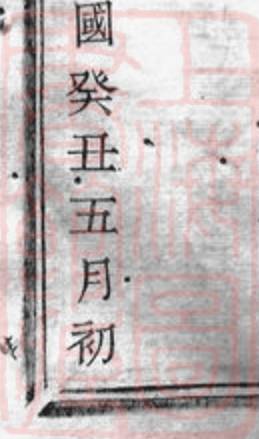 國癸丑五月初